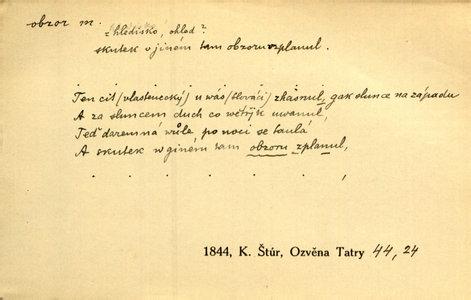 obzor m.
z hledisko, ohled?
skutek v jiném tam obzoru vzplanul.
Ten cit (vlastenecký) u wás (Slováci) zhasnul, gak slunce na západu
A za sluncem duch co wětřjk uwanul,
Teď daremná wůle po noci se taulá
A skutek w giném tam obzoru zplanul,
. . . . . ,
1844, K. Štúr, Ozvěna Tatry 44, 24